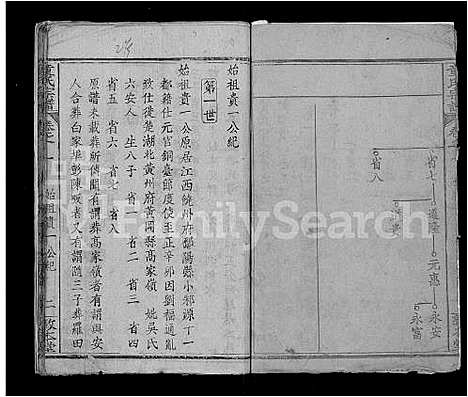 省七
遵隆
元惠
永安
永富
省八
始祖貴一公紀
第一世
始祖貴一公原居江西饒州府鄱陽縣小邪源丁一
都籍仕元官銅臺節度使至正辛卯因劉福通亂
致仕徙楚湖北黃州府黃岡縣高家嶺 妣吳氏
六安人 生八子 省一 省二 省三 省四
省五 省六 省七 省八
原譜未載葬所傳聞有謂葬高家嶺者有謂與安
人合葬白家埠彭陳墩者又有謂隨三子葬羅田
童氏宗譜
卷之一
始祖貴一公紀
二
FamilySearch